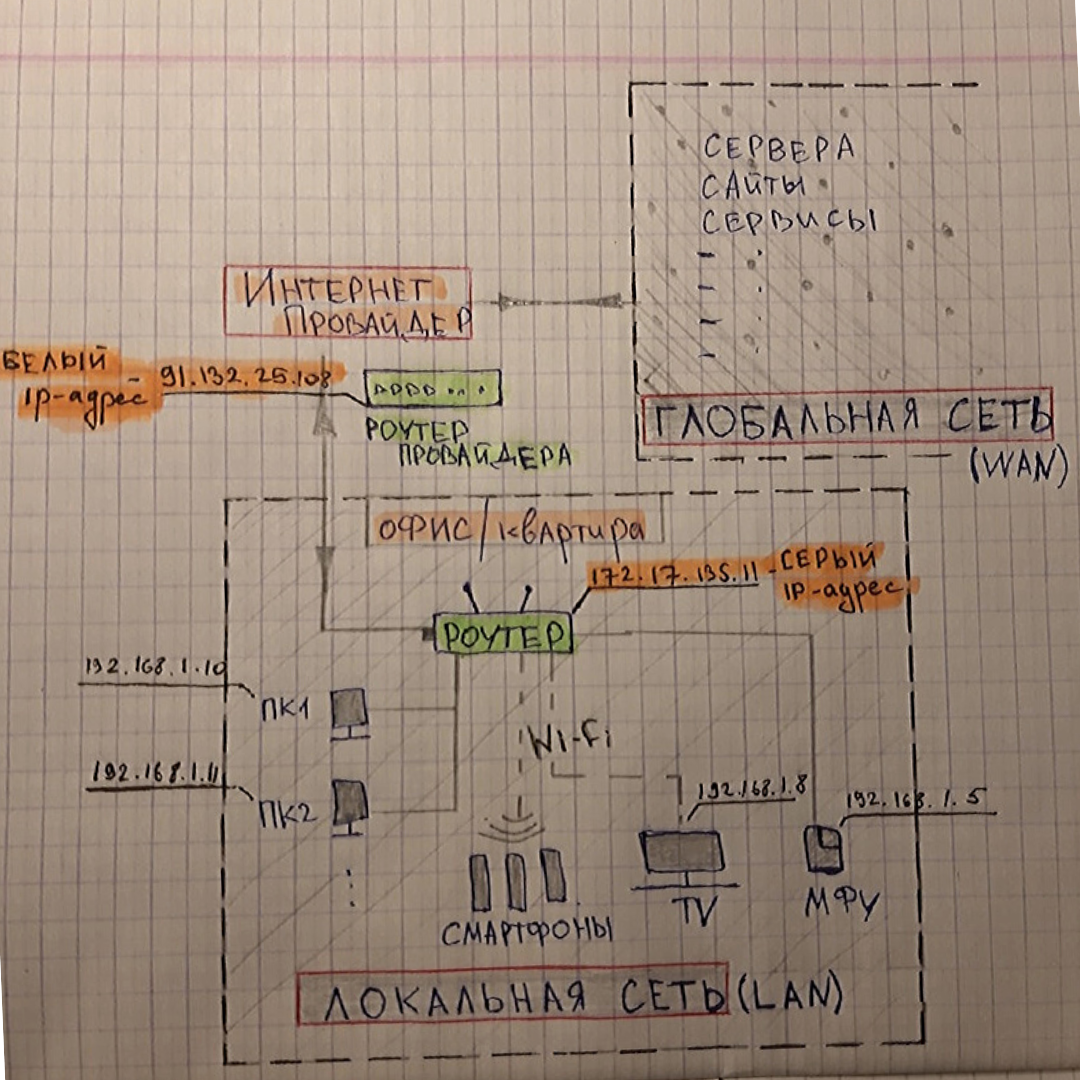 СЕРВЕРА
САЙТЫ
СЕРВИСЫ
ИНТЕРНЕТ
ПРОВАЙДЕР
БЕЛЫЙ
IP-адрес
91.132.25.108
РОУТЕР
ПРОВАЙДЕРА
ГЛОБАЛЬНАЯ СЕТЬ
(WAN)
ОФИС/квартира
172.17.135.11 - СЕРЫЙ
IP-адрес
РОУТЕР
192.168.1.10
ПК1
Wi-Fi
192.168.1.11
ПК2
192.168.1.8
192.168.1.5
TV
МФУ
СМАРТФОНЫ
ЛОКАЛЬНАЯ СЕТЬ (LAN)